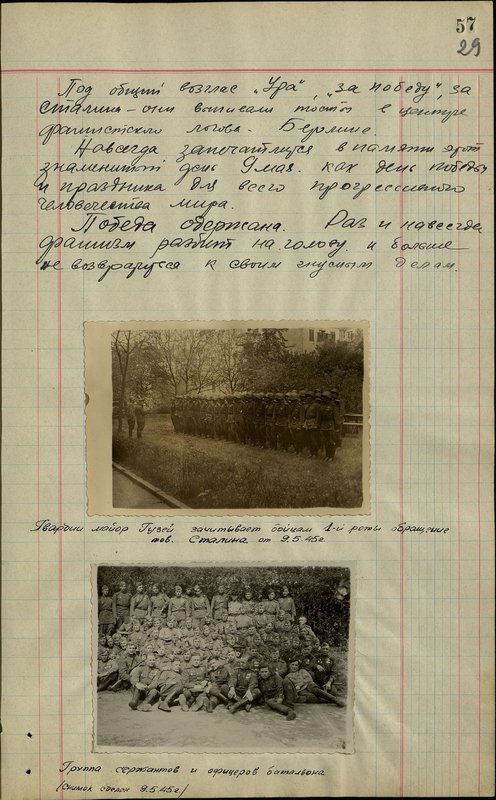 57
29
Под общий возглас „Ура", „за победу", за
Сталина – они выпивали тосты в центре
фашистского логова. Берлине.
Навсегда запечатлится в памяти этот
знаменитый день 9 мая. как день победы
и праздника для всего прогрессивного
человечества мира.
Победа одержана. Раз и навсегда
фашизм разбит на голову. и больше
не возвратится к своим гнусным делам.
Гвардии майор Гузей зачитывает бойцам 1-й роты обращение
тов. Сталина от 9.5.45г.
Группа сержантов и офицеров батальона
(Снимок сделан 9.5.45г)